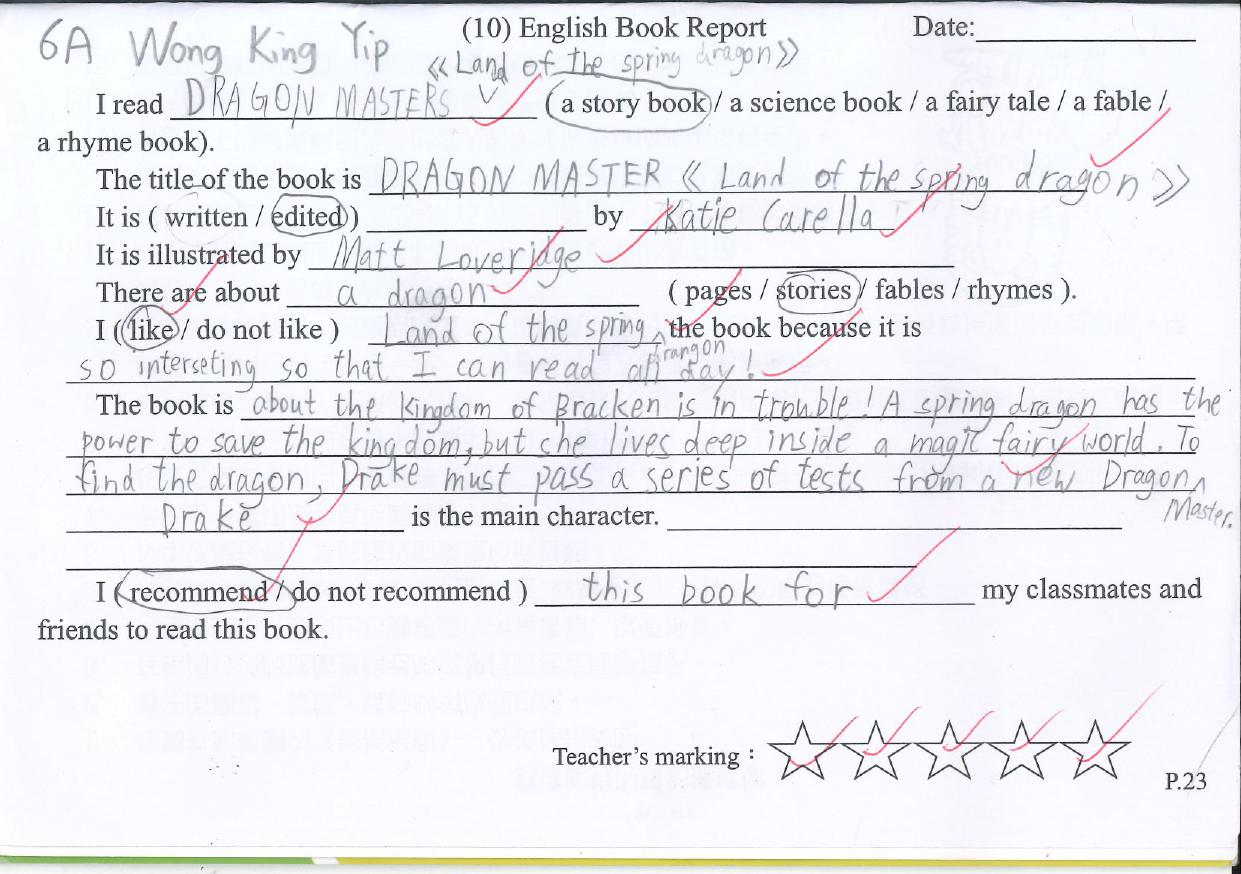 6A Wong King Yip (10) English Book Report Date:
《Land of the spring dragon》
I read DRAGON MASTERS (a story book / a science book / a fairy tale / a fable /
a rhyme book).
The title of the book is DRAGON MASTER 《Land of the spring dragon》
It is ( written / edited ) by Katie Carella
It is illustrated by Matt Loveridge
There are about a dragon ( pages / stories / fables / rhymes ).
I ( like / do not like ) Land of the spring the book because it is
drangon
so interseting so that I can read all day!
The book is about the kingdom of Bracken is in trouble! A spring dragon has the
power to save the kingdom, but she lives deep inside a magic fairy world. To
find the dragon, Drake must pass a series of tests from a new Dragon
Master.
Drake is the main character.
I ( recommend / do not recommend ) this book for my classmates and
friends to read this book.
Teacher's marking :
P.23